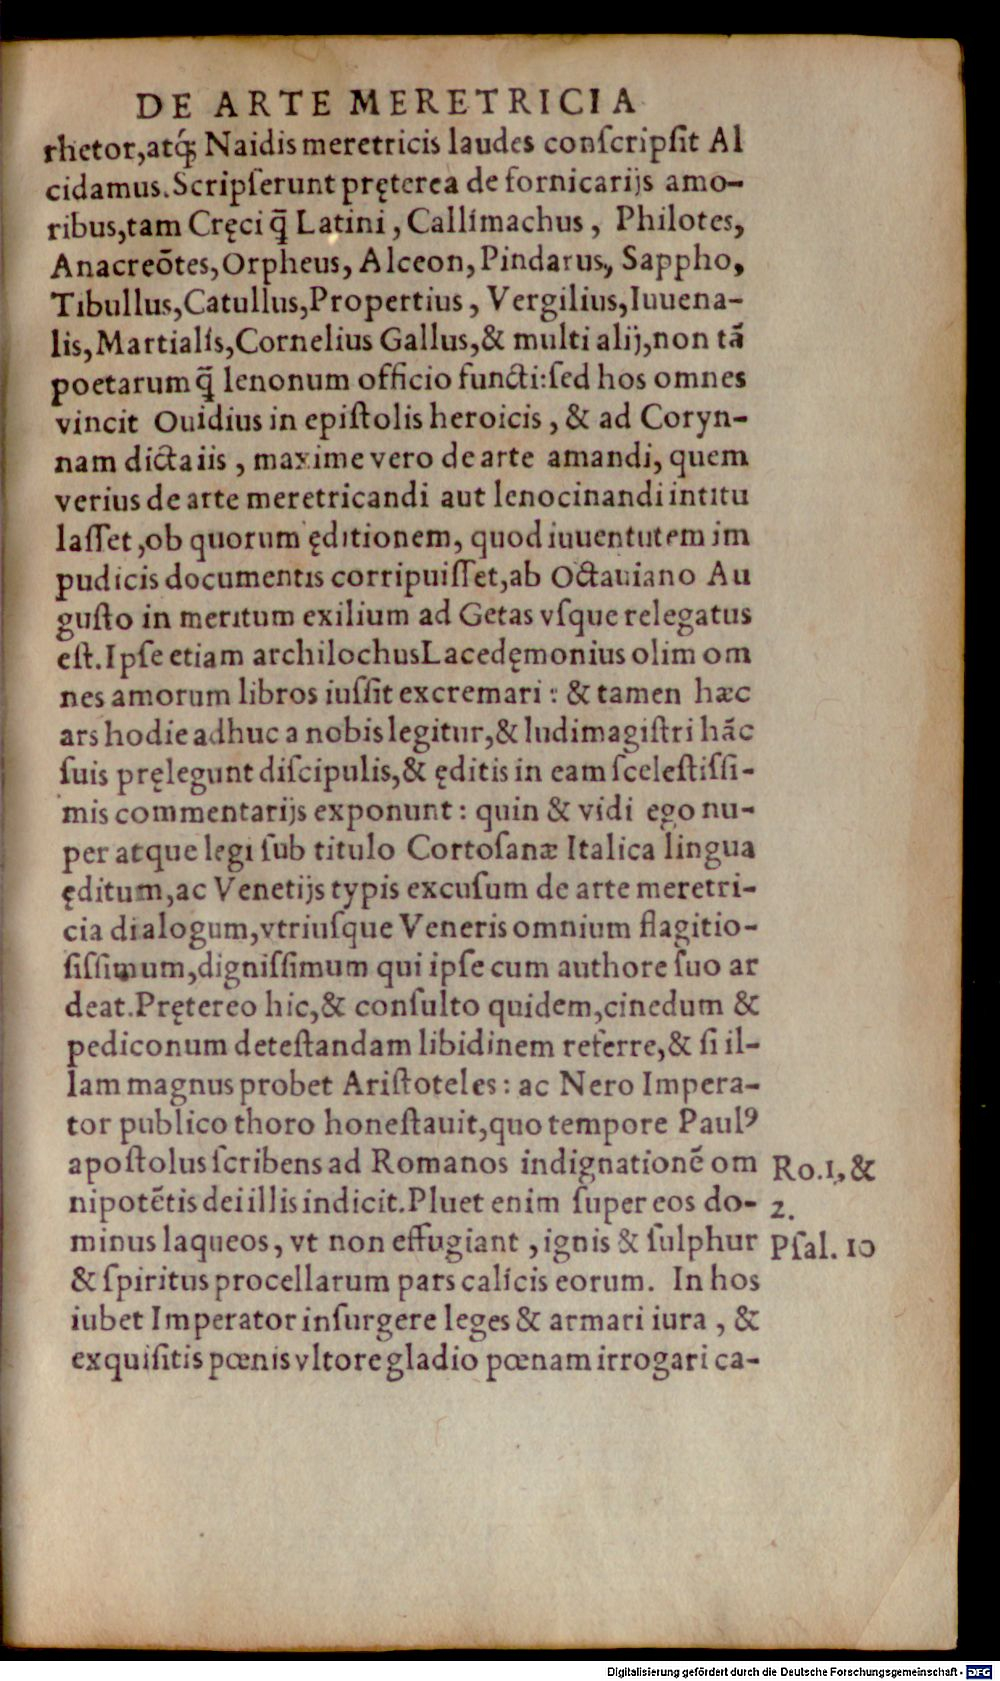 DE ARTE MERETRICIA
rhetor,atq́; Naidis meretricis laudes conſcripſit Al
cidamus.Scripſerunt pręterea de fornicarijs amo-
ribus,tam Cręci q̃ Latini , Callimachus , Philotes,
Anacreõtes,Orpheus, Alceon, Pindarus, Sappho,
Tibullus,Catullus,Propertius , Vergilius,Iuuena-
lis,Martialis,Cornelius Gallus,& multi alij,non tã
poetarum q̃ lenonum officio functi:ſed hos omnes
vincit Ouidius in epiſtolis heroicis , & ad Coryn-
nam dictaiis , maxime vero de arte amandi, quem
verius de arte meretricandi aut lenocinandi intitu
laſſet ,ob quorum ęditionem, quod iuuentutem im
pudicis documentis corripuiſſet,ab Octauiano Au
guſto in meritum exilium ad Getas vſque relegatus
eſt.Ipſe etiam archilochus Lacedęmonius olim om
nes amorum libros iuſſit excremari : & tamen hæc
ars hodie adhuc a nobis legitur,& ludimagiſtri hãc
ſuis pręlegunt diſcipulis,& ęditis in eam ſceleſtiſſi-
mis commentarijs exponunt : quin & vidi ego nu-
per atque legi ſub titulo Cortoſanæ Italica lingua
ęditum,ac Venetijs typis excuſum de arte meretri-
cia dialogum,vtriuſque Veneris omnium flagitio-
ſiſſimum,digniſſimum qui ipſe cum authore ſuo ar
deat.Prętereo hic,& conſulto quidem,cinedum &
pediconum deteſtandam libidinem referre,& ſi il-
lam magnus probet Ariſtoteles : ac Nero Impera-
tor publico thoro honeſtauit,quo tempore Paulꝰ
apoſtolus ſcribens ad Romanos indignationẽ om
nipotẽtis dei illis indicit.Pluet enim ſuper eos do-
minus laqueos, vt non effugiant , ignis & ſulphur
& ſpiritus procellarum pars calicis eorum. In hos
iubet Imperator inſurgere leges & armari iura , &
exquiſitis pœnis vltore gladio pœnam irrogari ca-
Ro.1, &
2.
Pſal. 10
Digitalisierung gefördert durch die Deutsche Forschungsgemeinschaft - DFG